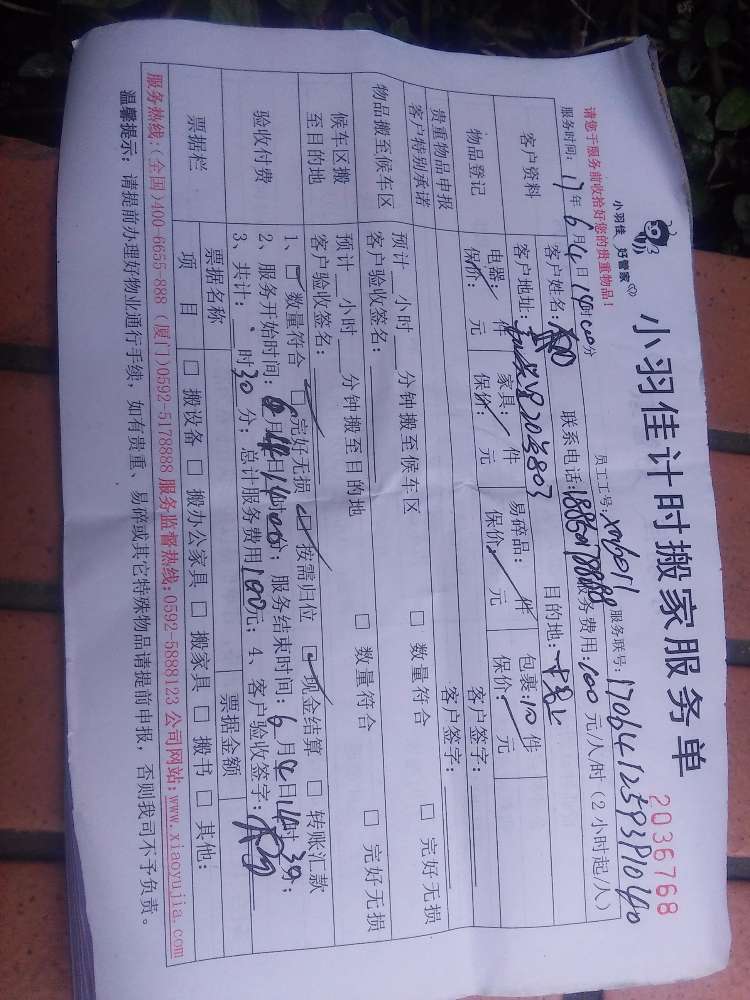 小羽佳计时搬家服务单
2036768
小羽佳 好管家
请您于服务前收拾好您的贵重物品！
员工工号: xm6011 服务联号:
服务时间: 17年6月4日14时00分
服务费用:100元/人/时(2小时起/人)
客户资料
客户姓名:
联系电话:
客户地址:
目的地:
物品登记
电器: 件 家具: 件 易碎品: 件 包裹:10件
保价: 元 保价: 元 保价: 元 保价: 元
贵重物品申报
客户签字:
客户特别承诺
客户签字:
物品搬至候车区
预计__小时__分钟搬至候车区 □ 数量符合 □ 完好无损
客户验收签名:
候车区搬至目的地
预计__小时__分钟搬至目的地 □ 数量符合 □ 完好无损
客户验收签名:
验收付费
1、□ 数量符合 □ 完好无损 □ 按需归位 □ 现金结算 □ 转账汇款
2、服务开始时间: 6月4日14时00分; 服务结束时间: 6月4日14时30分;
3、共计:__时30分; 总计服务费用100元; 4、客户验收签字:
票据栏
票据名称 票据金额
项 目 □ 搬设备 □ 搬办公家具 □ 搬家具 □ 搬书 □ 其他:
服务热线:(全国)400-6655-888 (厦门)0592-5178888 服务监督热线:0592-5888123 公司网站:www.xiaoyujia.com
温馨提示: 请提前办理好物业通行手续, 如有贵重、易碎或其它特殊物品请提前申报, 否则我司不予负责。